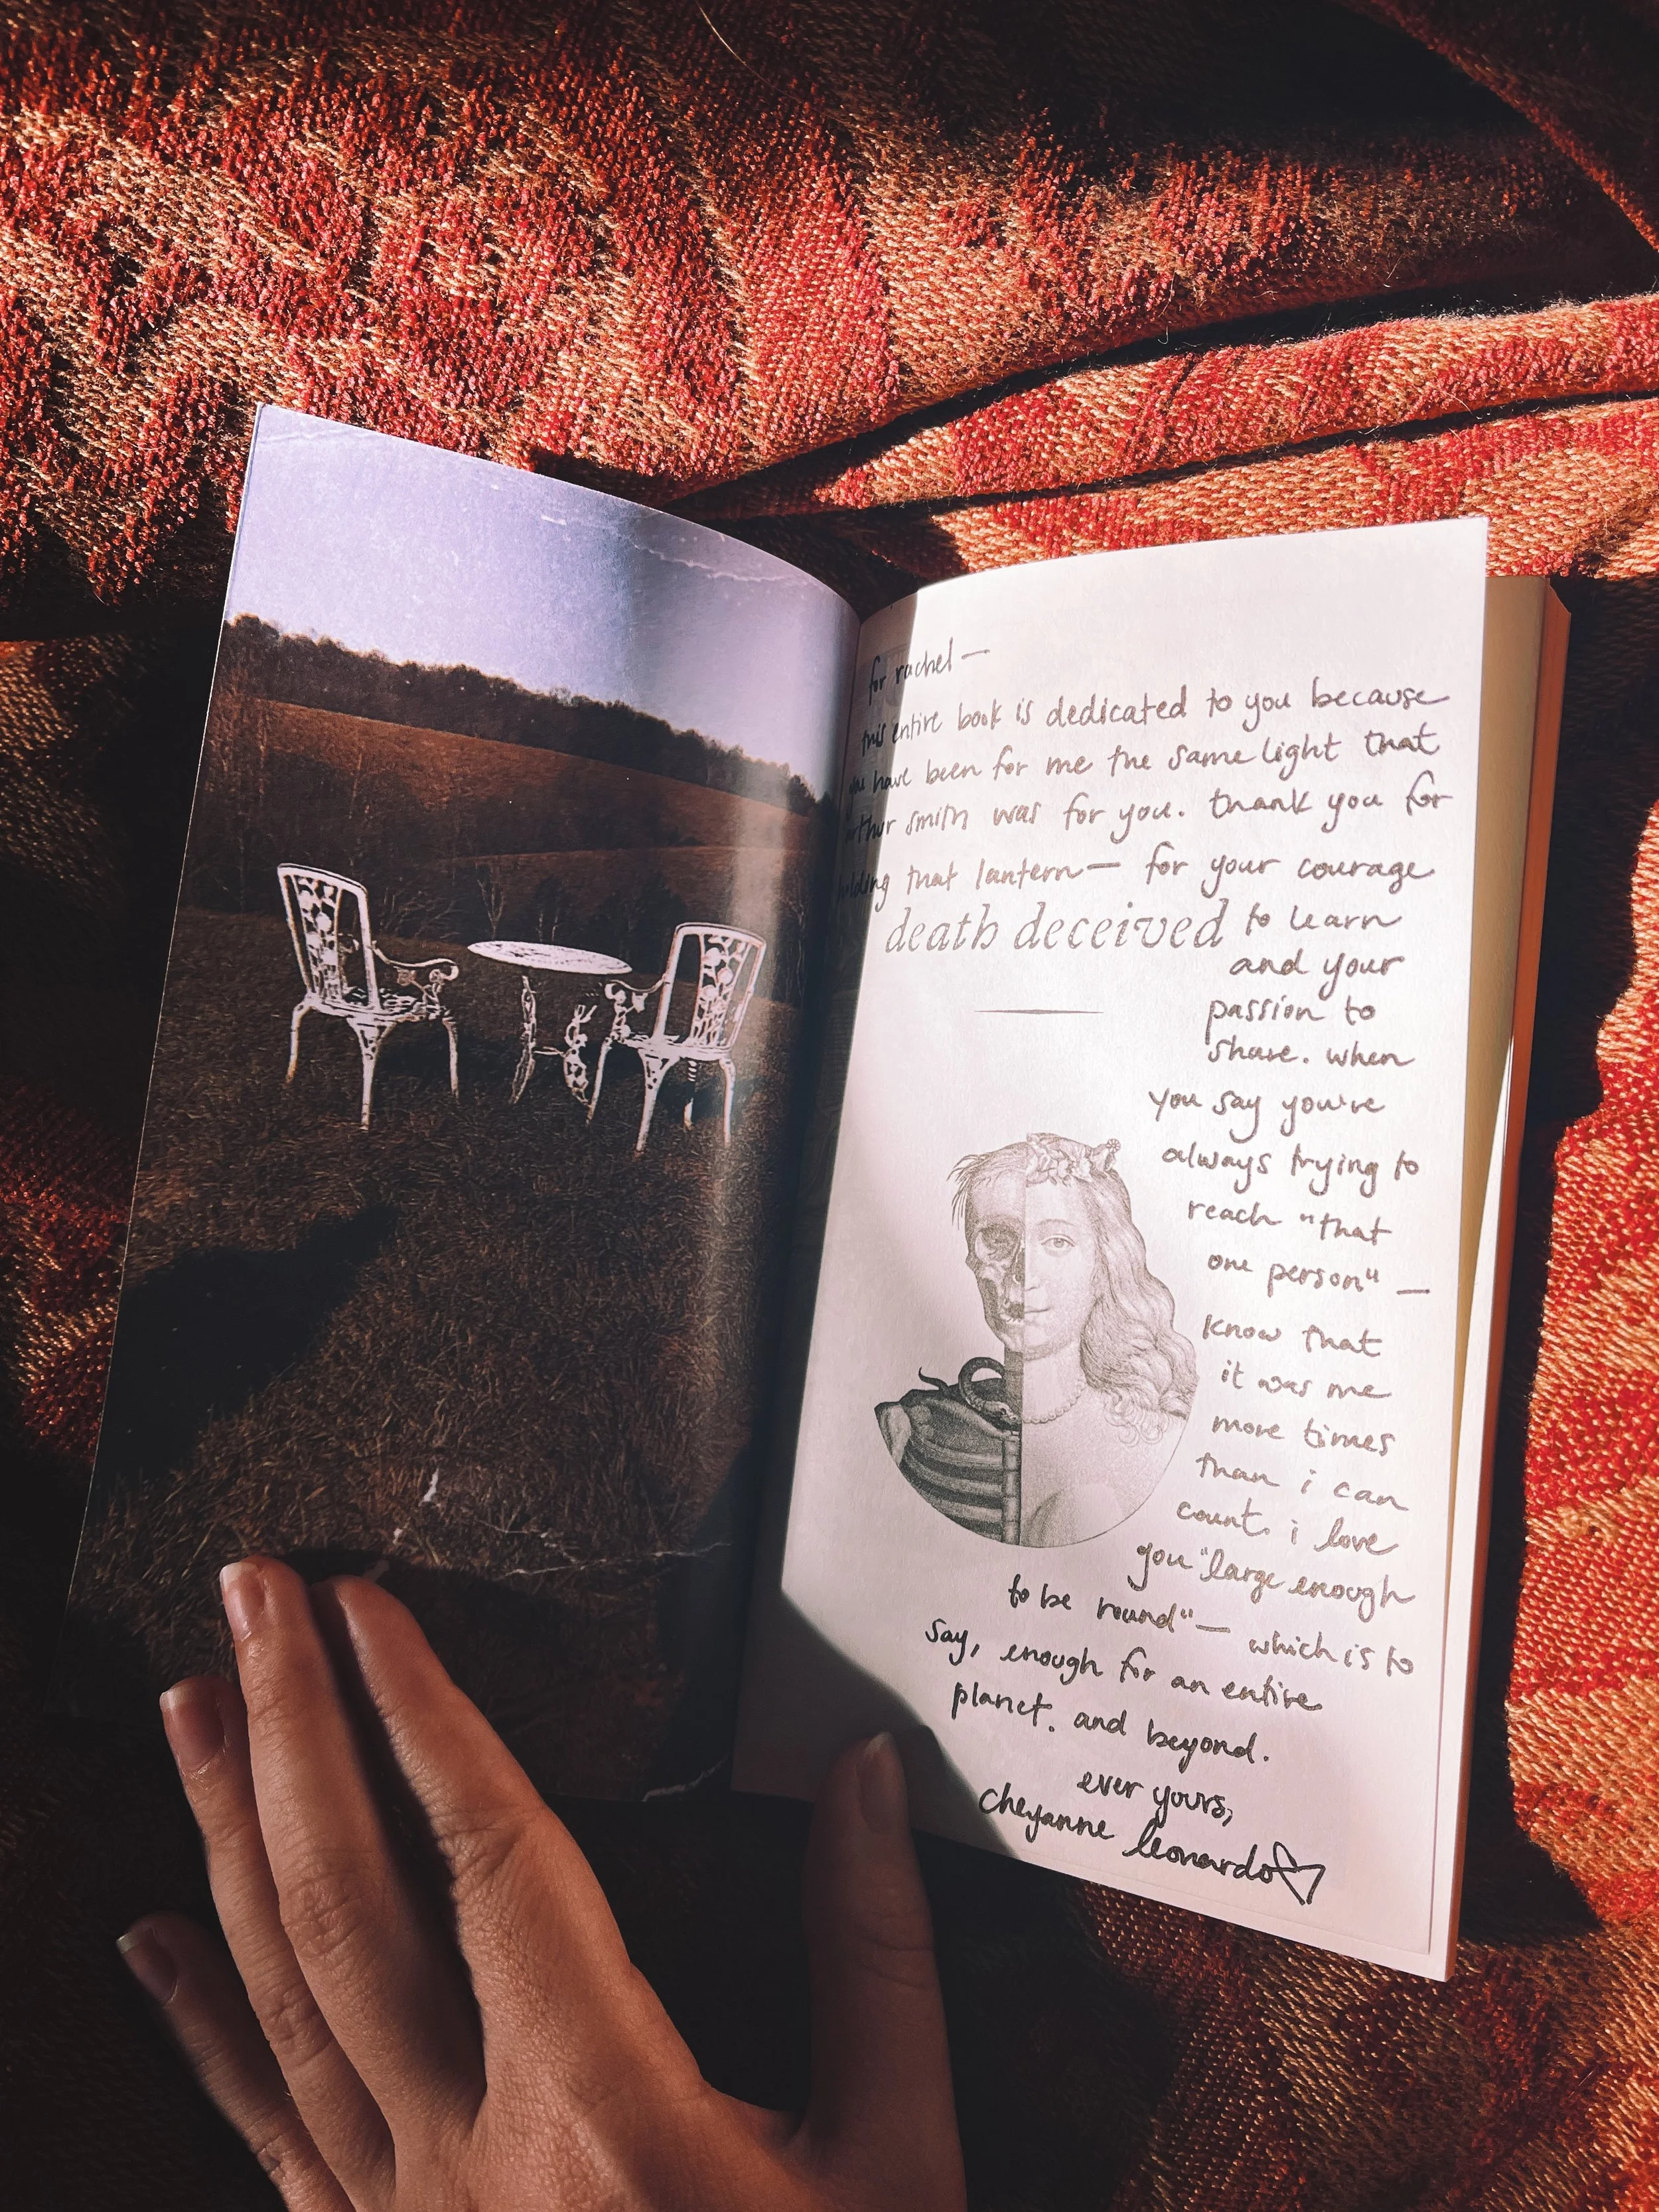 for rachel —
this entire book is dedicated to you because
you have been for me the same light that
arthur smith was for you. thank you for
holding that lantern — for your courage
death deceived to learn
and your
passion to
share. when
you say you're
always trying to
reach "that
one person" —
know that
it was me
more times
than i can
count. i love
you "large enough
to be round" — which is to
say, enough for an entire
planet. and beyond.
ever yours,
cheyanne leonardo